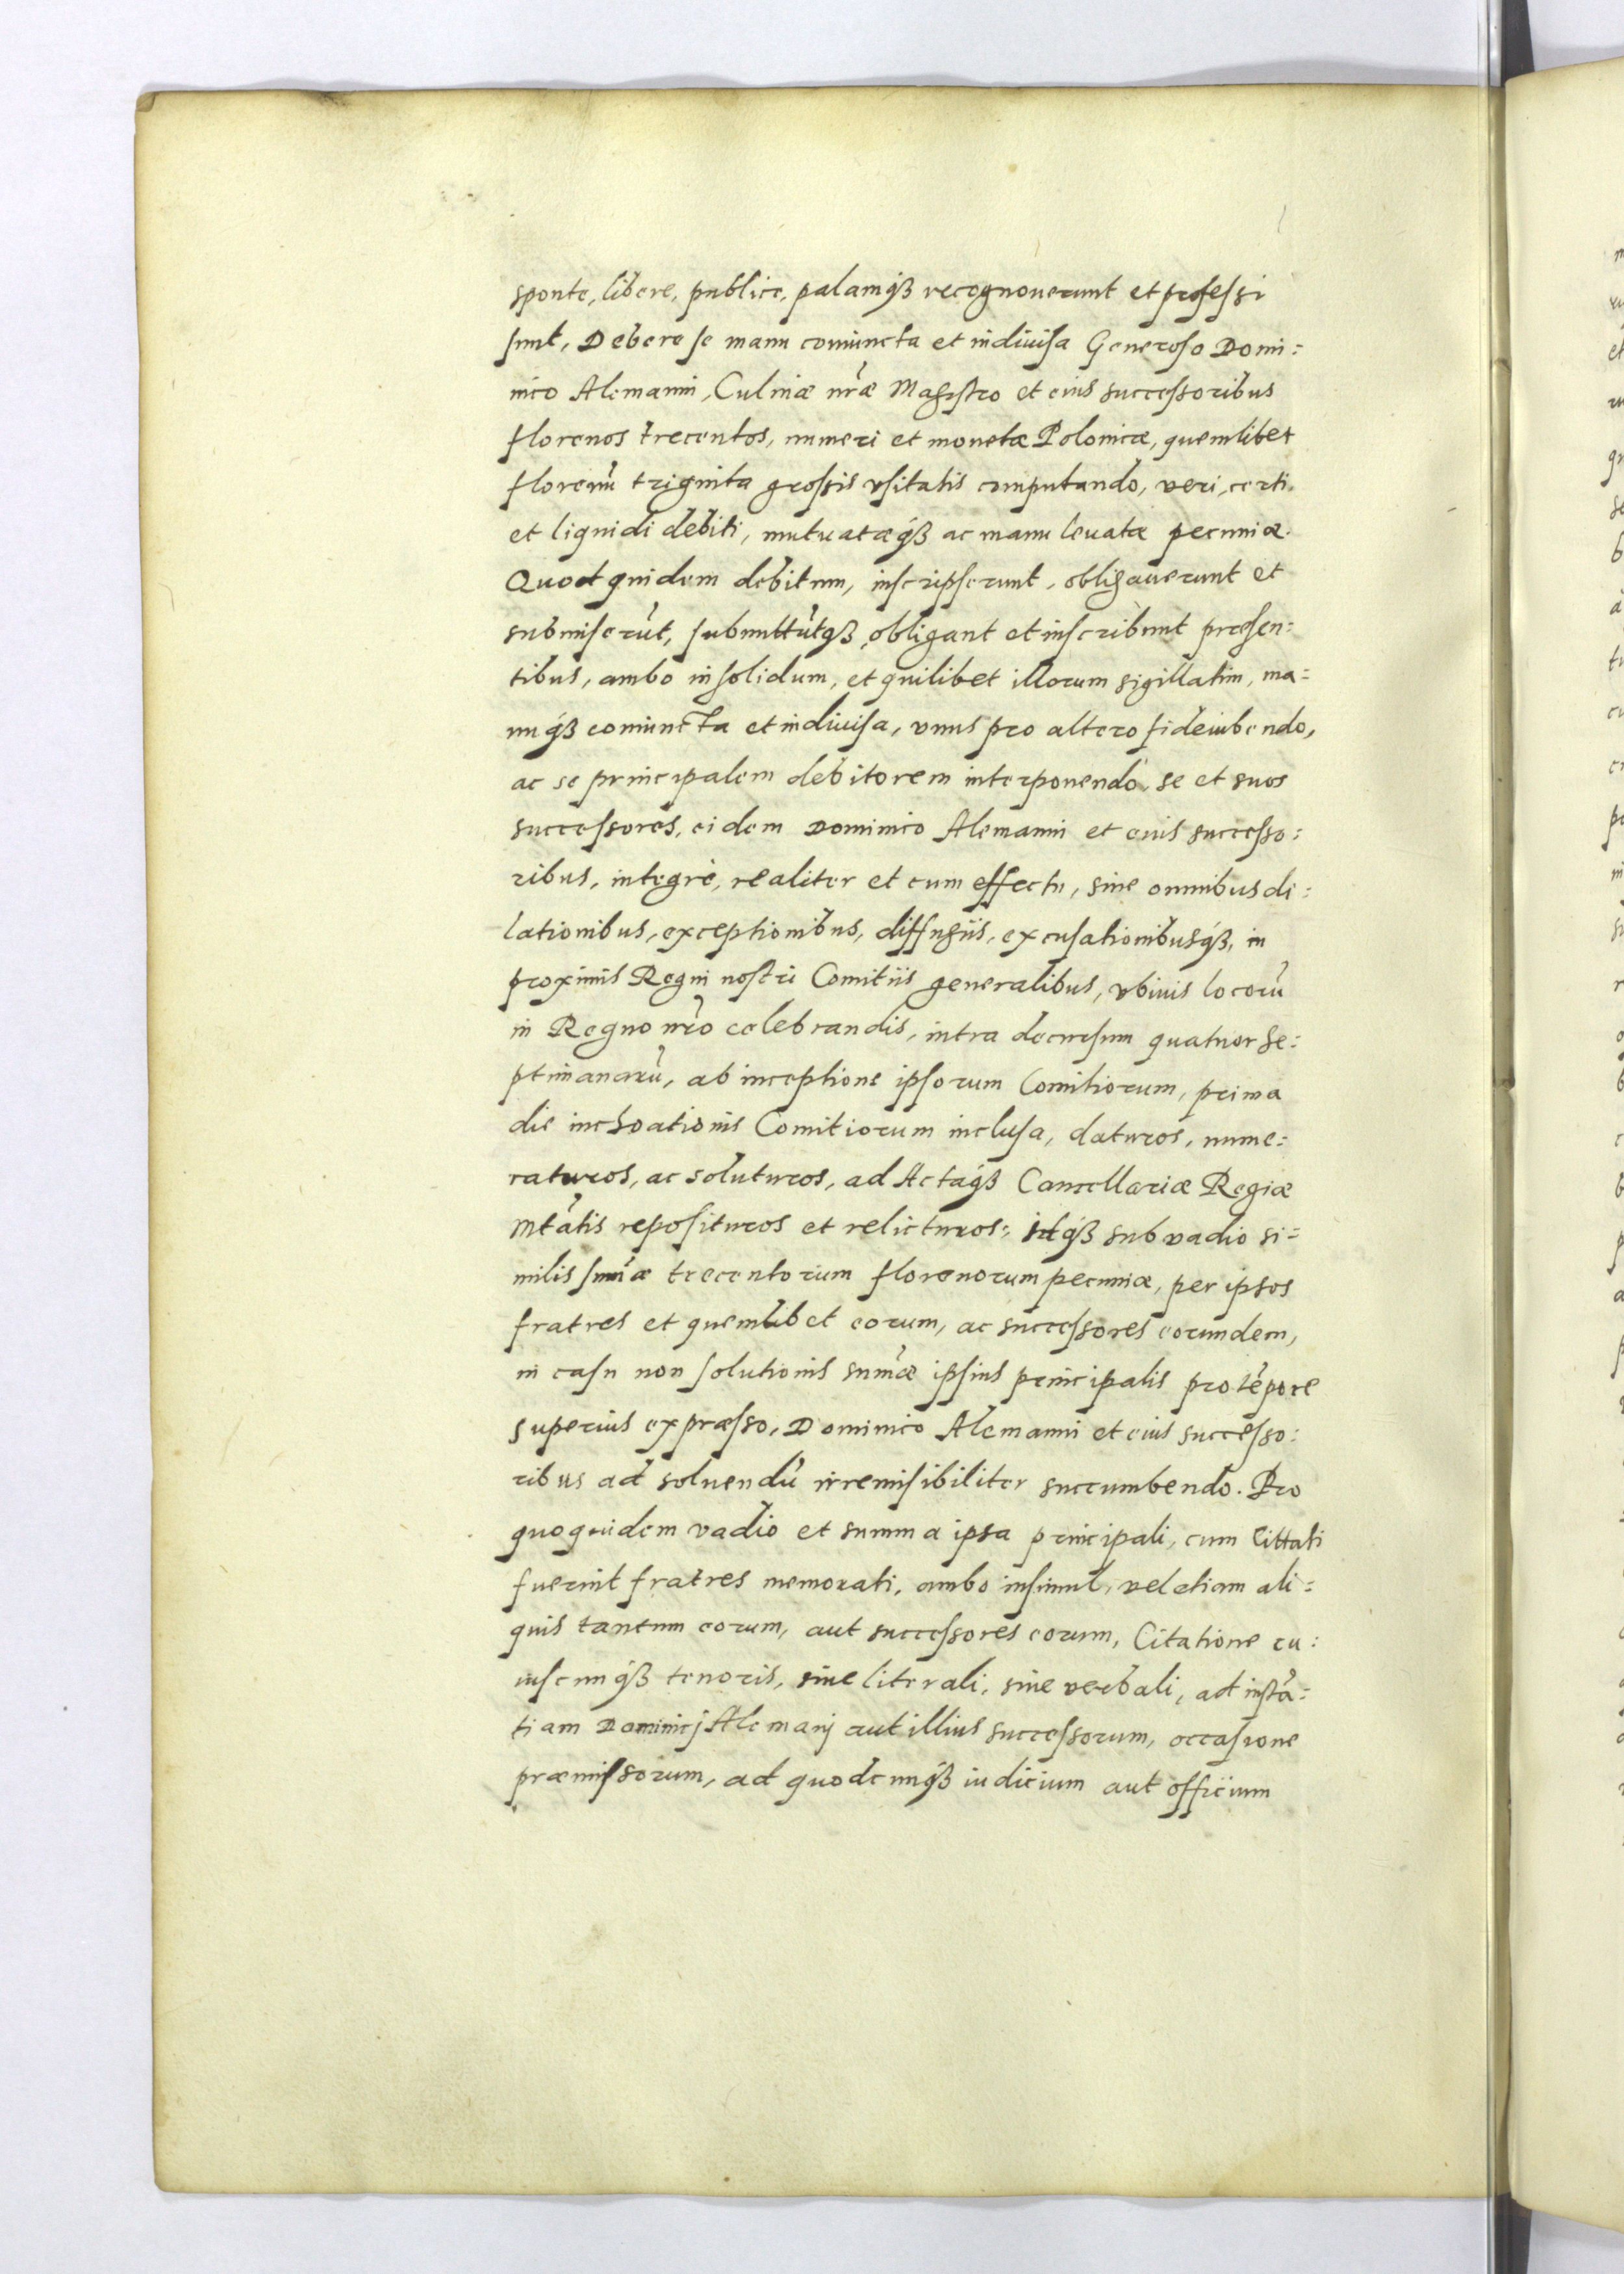 sponte, libere, publice, palamqꝫ recognouerunt et professi
sunt, Debere se manu coniuncta et indiuisa Generoso Domi:
nico Alemanni, Culinæ nr̃æ Magistro et eius successoribus
florenos trecentos, numeri et monetæ Polonicæ, quemlibet
florenũ triginta grossis vsitatis computando, veri, certi
et liquidi debiti, mutuatæqꝫ ac manu leuatæ pecuniæ.
Quod quidem debitum, inscripserunt, obligauerunt et
submiserũt, submittũtqꝫ, obligant et inscribunt præsen:
tibus, ambo in solidum, et quilibet illorum sigillatim, ma:
nuqꝫ coniuncta et indiuisa, vnus pro altero fideiubendo,
ac se principalem debitorem interponendo, se et suos
successores, eidem Dominico Alemanni et eius successo:
ribus, integrè, realiter et cum effectu, sine omnibus di:
lationibus, exceptionibus, diffugiis, excusationibusqꝫ, in
proximis Regni nostri Comitiis generalibus, vbiuis locorũ
in Regno nr̃o celebrandis, intra decursum quatuor se:
ptimanarũ, ab inceptione ipsorum Comitiorum, prima
die inchoationis Comitiorum inclusa, daturos, nume:
raturos, ac soluturos, ad Actaqꝫ Cancellariæ Regiæ
Mtãtis reposituros et relicturos: idqꝫ sub vadio si:
milis sum̃æ trecentorum florenorum pecuniæ, per ipsos
fratres et quemlibet eorum, ac successores eorundem,
in casu non solutionis sum̃æ ipsius principalis pro tẽpore
superius expræsso, Dominico Alemanni et eius successo:
ribus ad soluendũ irremisibiliter succumbendo. Pro
quo quidem vadio et summa ipsa principali, cum Cittati
fuerint fratres memorati, ambo insimul, vel etiam ali:
quis tantum eorum, aut successores eorum, Citatione cu:
iuscunqꝫ tenoris, siue literali, siue verbali, ad instã:
tiam Dominicj Alemanj aut illius successorum, occasione
præmissorum, ad quodcunqꝫ iudicium aut officium